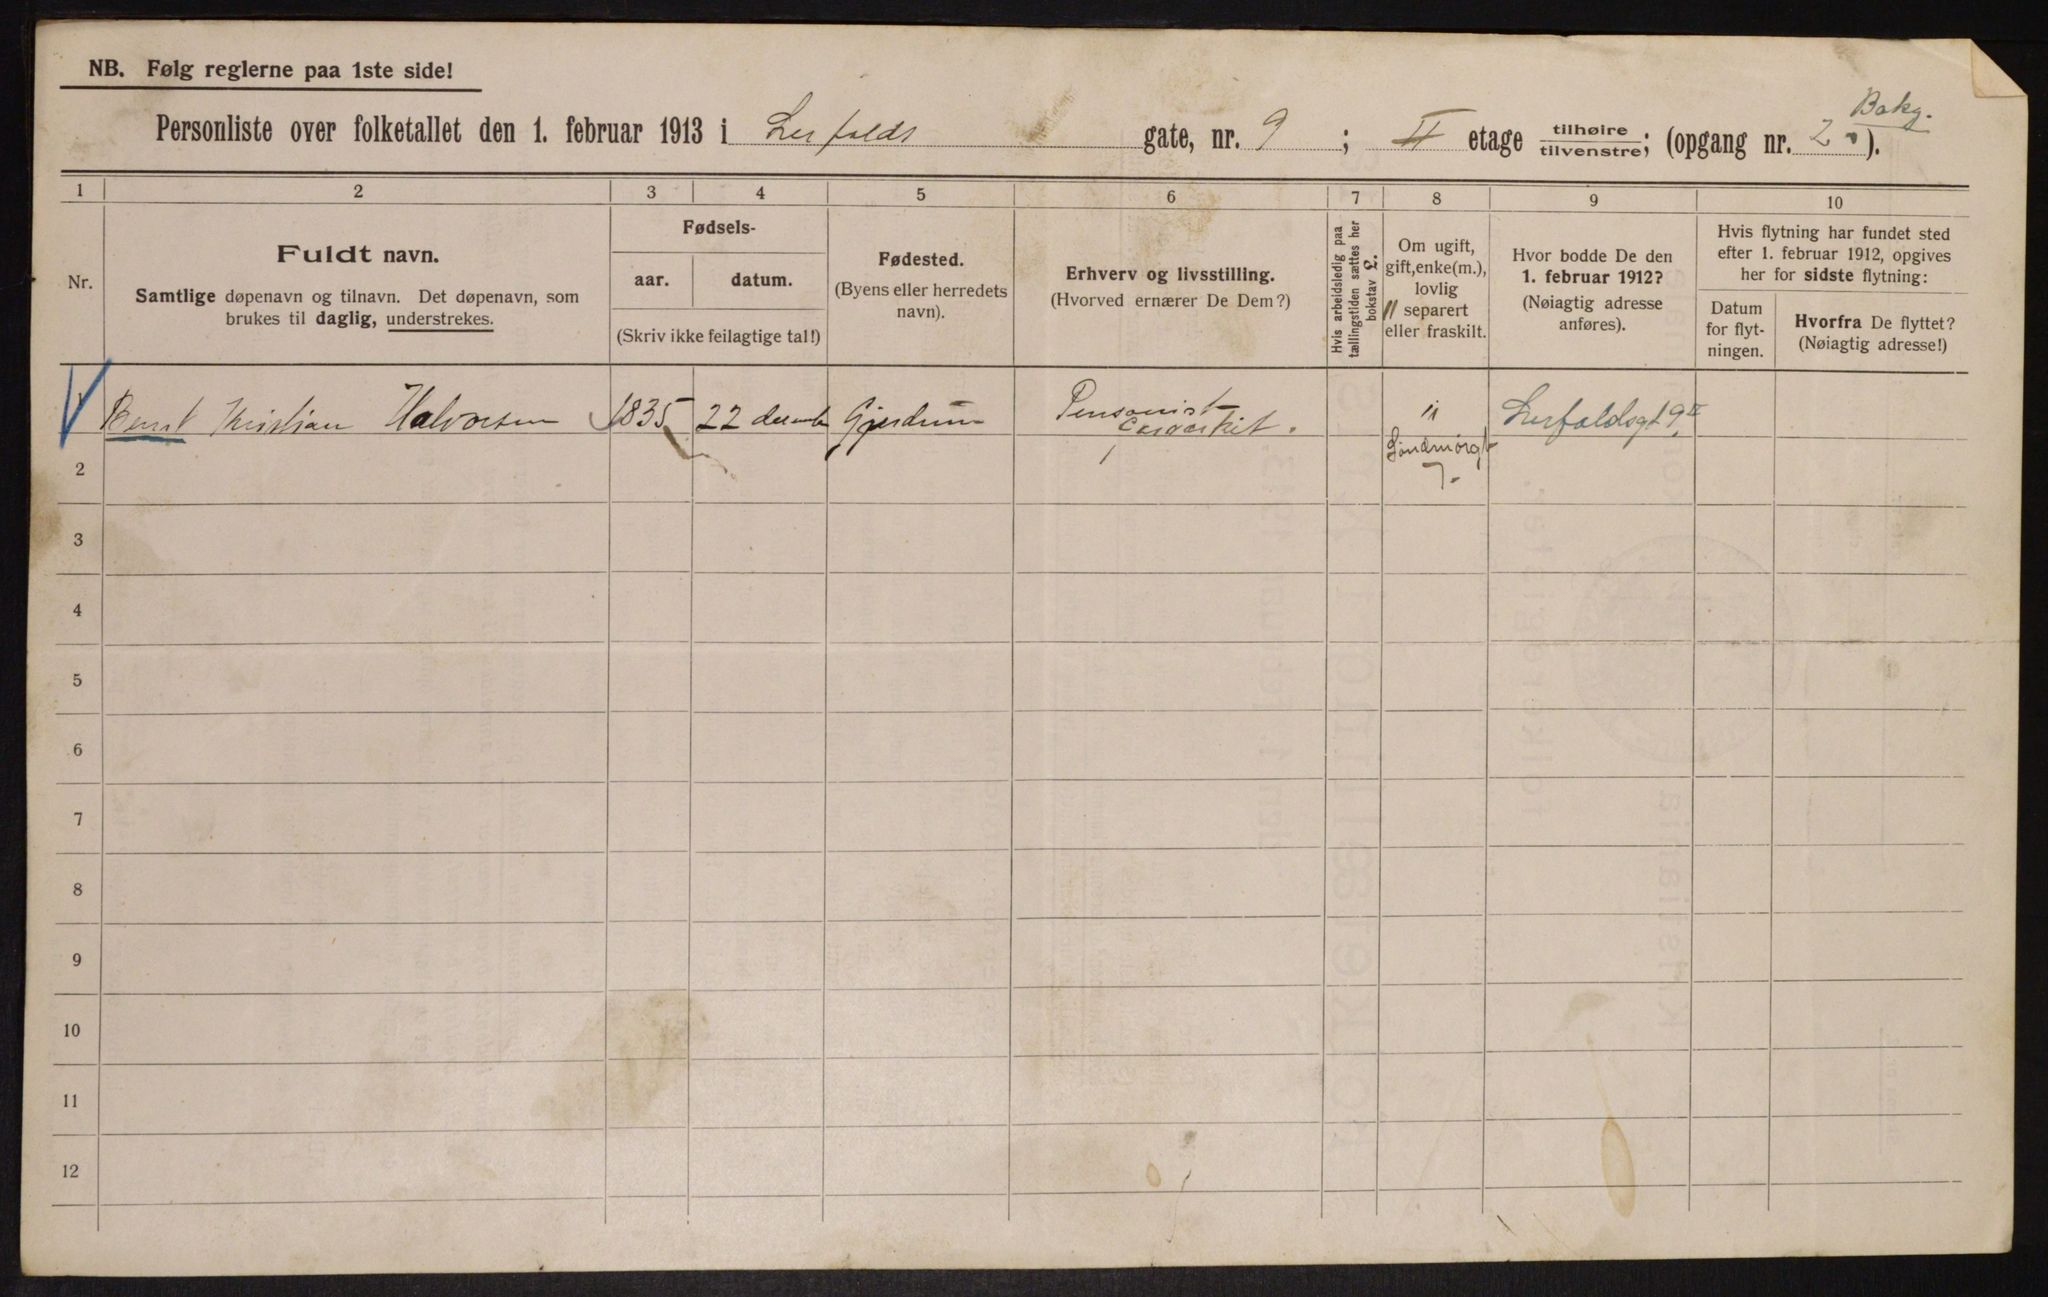 NB. Følg reglerne paa 1ste side!
Bakg.
Personliste over folketallet den 1. februar 1913 i Lerfalds gate, nr. 9 ; II etage tilhøire tilvenstre; (opgang nr. 2 ).
1 2 3 4 5 6 7 8 9 10
Nr.
Fuldt navn.
Samtlige døpenavn og tilnavn. Det døpenavn, som
brukes til daglig, understrekes.
Fødsels-
aar. datum.
(Skriv ikke feilagtige tal!)
Fødested.
(Byens eller herredets
navn).
Erhverv og livsstilling.
(Hvorved ernærer De Dem?)
Hvis arbeidsledig paa
tællingstiden sættes her
bokstav L.
Om ugift,
gift, enke(m.),
lovlig
separert
eller fraskilt.
Hvor bodde De den
1. februar 1912?
(Nøiagtig adresse
anføres).
Hvis flytning har fundet sted
efter 1. februar 1912, opgives
her for sidste flytning:
Datum
for flyt-
ningen.
Hvorfra De flyttet?
(Nøiagtig adresse!)
1 Bernt Kristian Halvorsen 1835 22 decembr Gjerdrum Pensonist Lerfaldsgt 9 II
Søndmørgt
7.
2
3
4
5
6
7
8
9
10
11
12